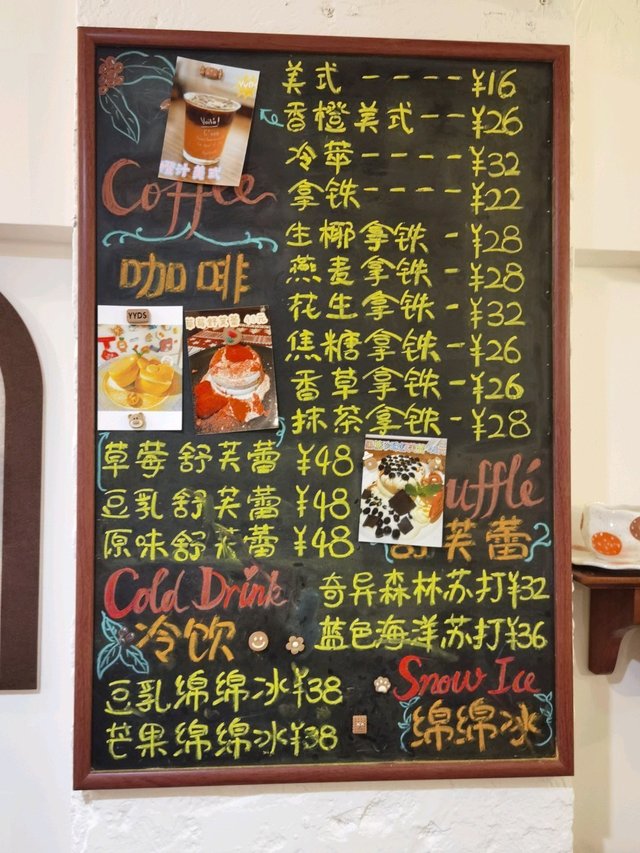 美式----¥16
香橙美式--¥26
冷萃----¥32
拿铁----¥22
Coffee
咖啡
生椰拿铁-¥28
燕麦拿铁-¥28
花生拿铁-¥32
焦糖拿铁-¥26
香草拿铁-¥26
抹茶拿铁-¥28
YYDS
草莓舒芙蕾 ¥48
豆乳舒芙蕾 ¥48
原味舒芙蕾 ¥48
ufflé
芙蕾
Cold Drink
冷饮
奇异森林苏打¥32
蓝色海洋苏打¥36
豆乳绵绵冰¥38
芒果绵绵冰¥38
Snow Ice
绵绵冰